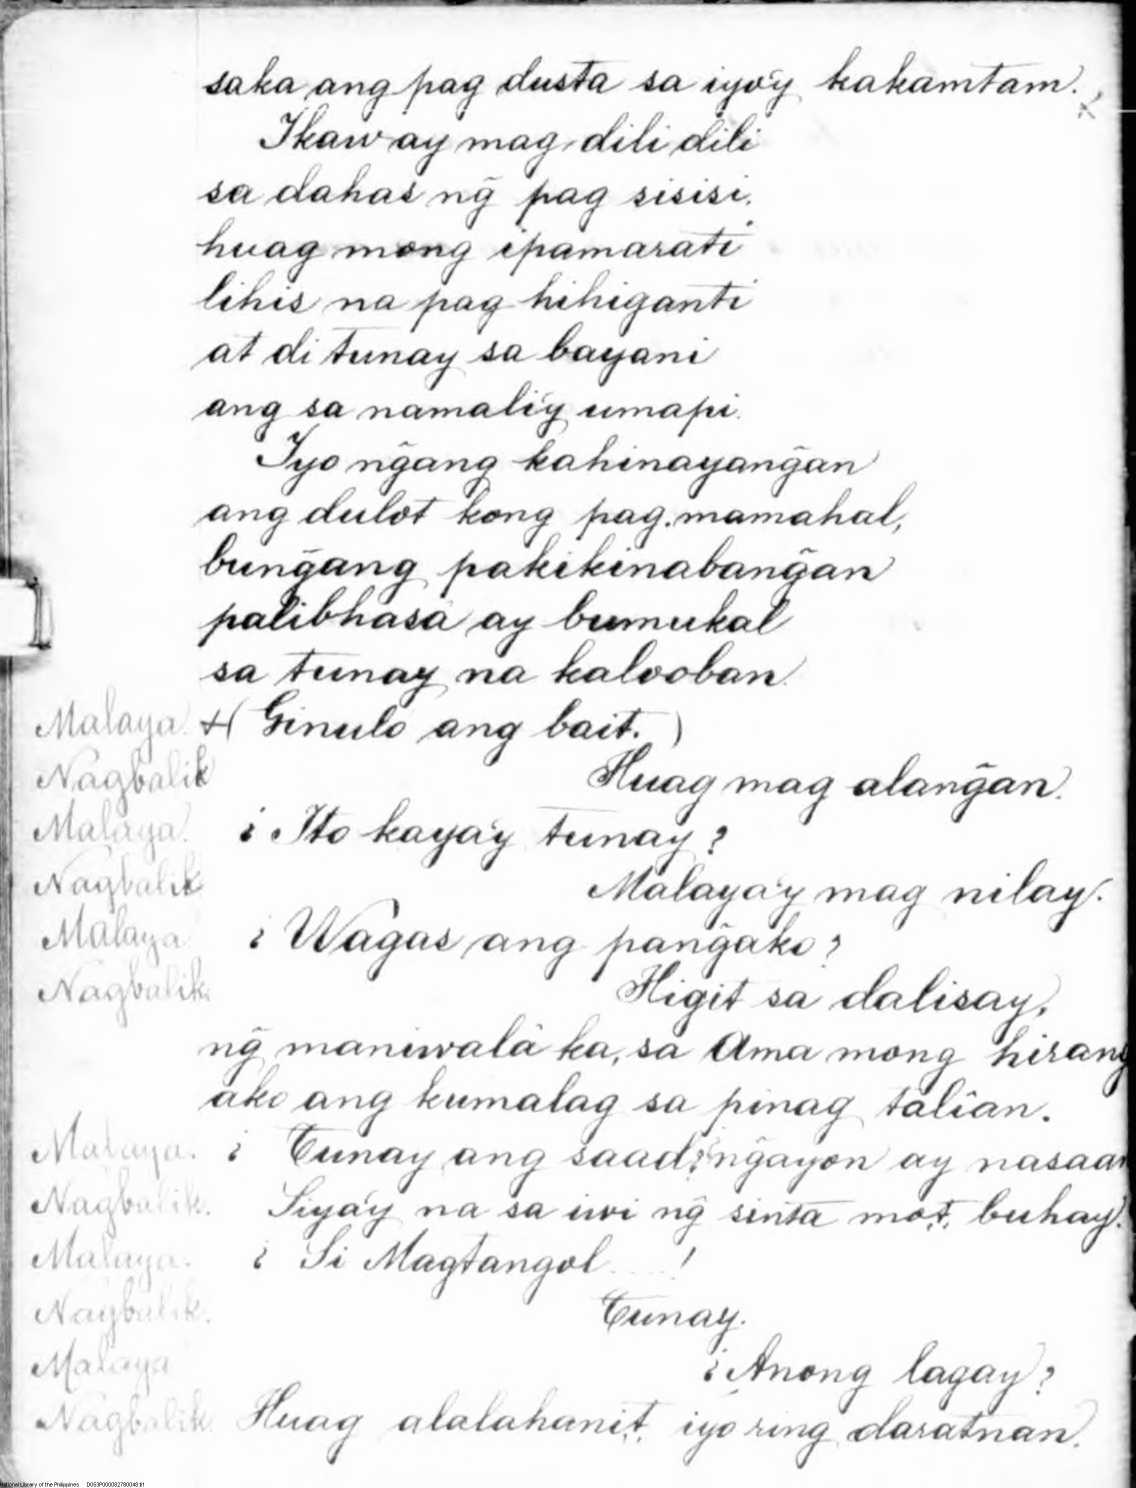 saka ang pag dusta sa iyo'y kakamtam.
Ikaw ay mag dili dili
sa dahas ng̃ pag sisisi.
huag mong ipamarati
lihis na pag hihiganti
at di tunay sa bayani
ang sa namali'y umapi.
Iyo ng̃ang kahinayang̃an
ang dulot kong pag mamahal,
bung̃ang pakikinabang̃an
palibhasa ay bumukal
sa tunay na kalooban.
Malaya. +( Ginulo ang bait. )
Nagbalik Huag mag alang̃an.
Malaya. ¿ Ito kaya'y tunay ?
Nagbalik Malaya'y mag nilay.
Malaya ¿ Wagas ang pang̃ako ?
Nagbalik. Higit sa dalisay,
ng̃ maniwalâ ka, sa Ama mong hirang
ako ang kumalag sa pinag talîan.
Malaya. ¿ Tunay ang saad? ng̃ayon ay nasaan
Nagbalik. Siya'y na sa iwi ng̃ sinta mo't, buhay.
Malaya. ¿ Si Magtangol ....!
Nagbalik. Tunay.
Malaya ¿ Anong lagay ?
Nagbalik. Huag alalahani't, iyo ring daratnan.
National Library of the Philippines